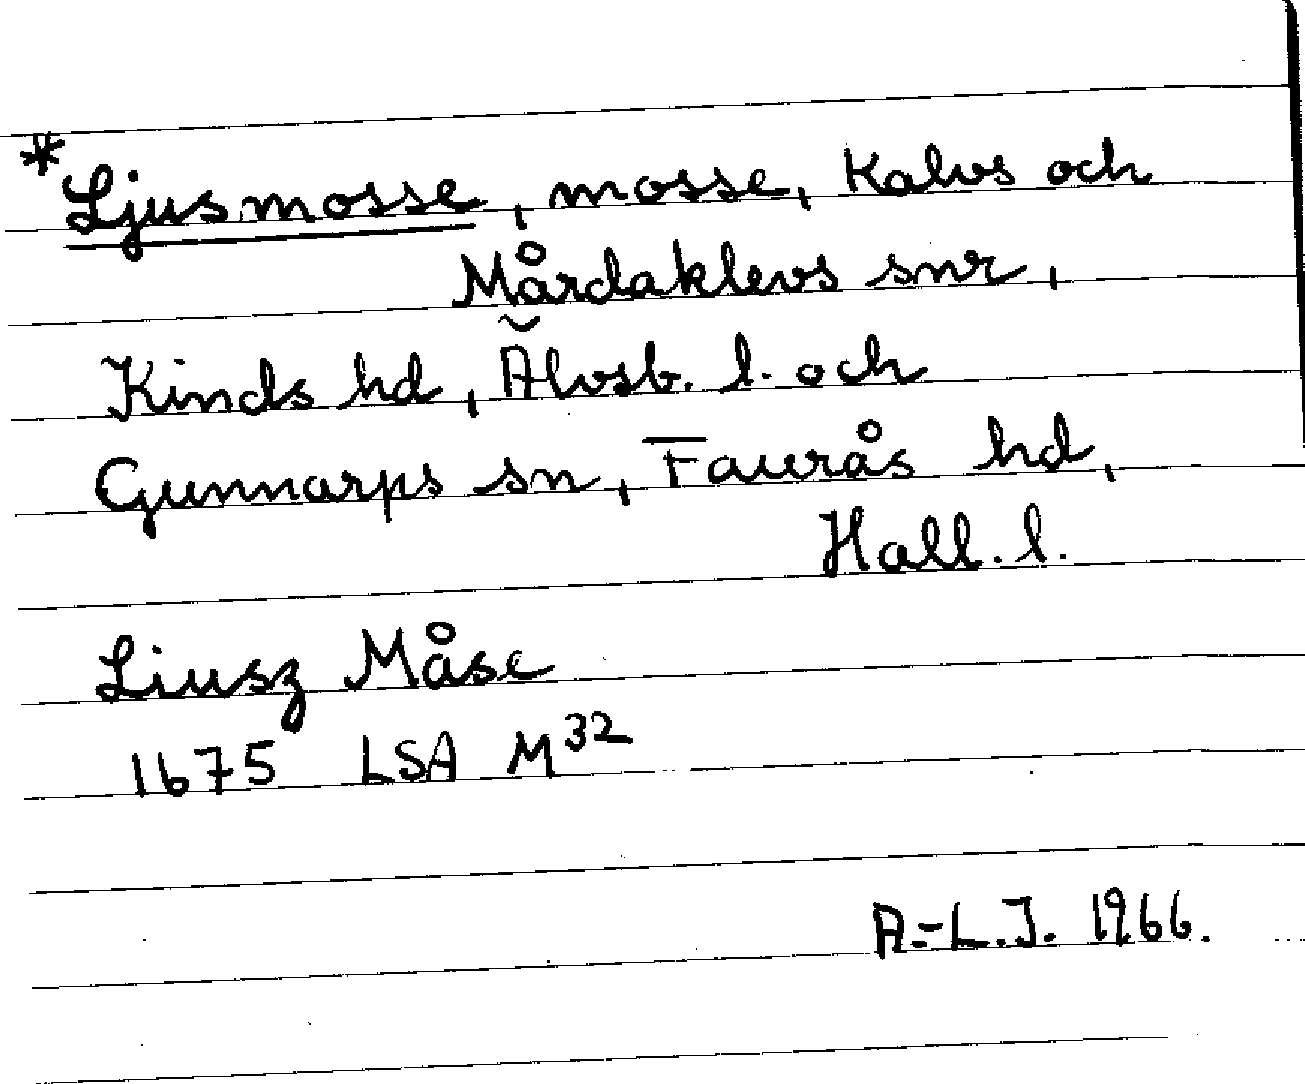 *Ljusmosse, mosse, Kalvs och
Mårdaklevs snr,
Kinds hd, Älvsb. l. och
Gunnarps sn, Faurås hd,
Hall. l.
Liusz Måse
1675 LSA M³²
A.-L.J. 1966.